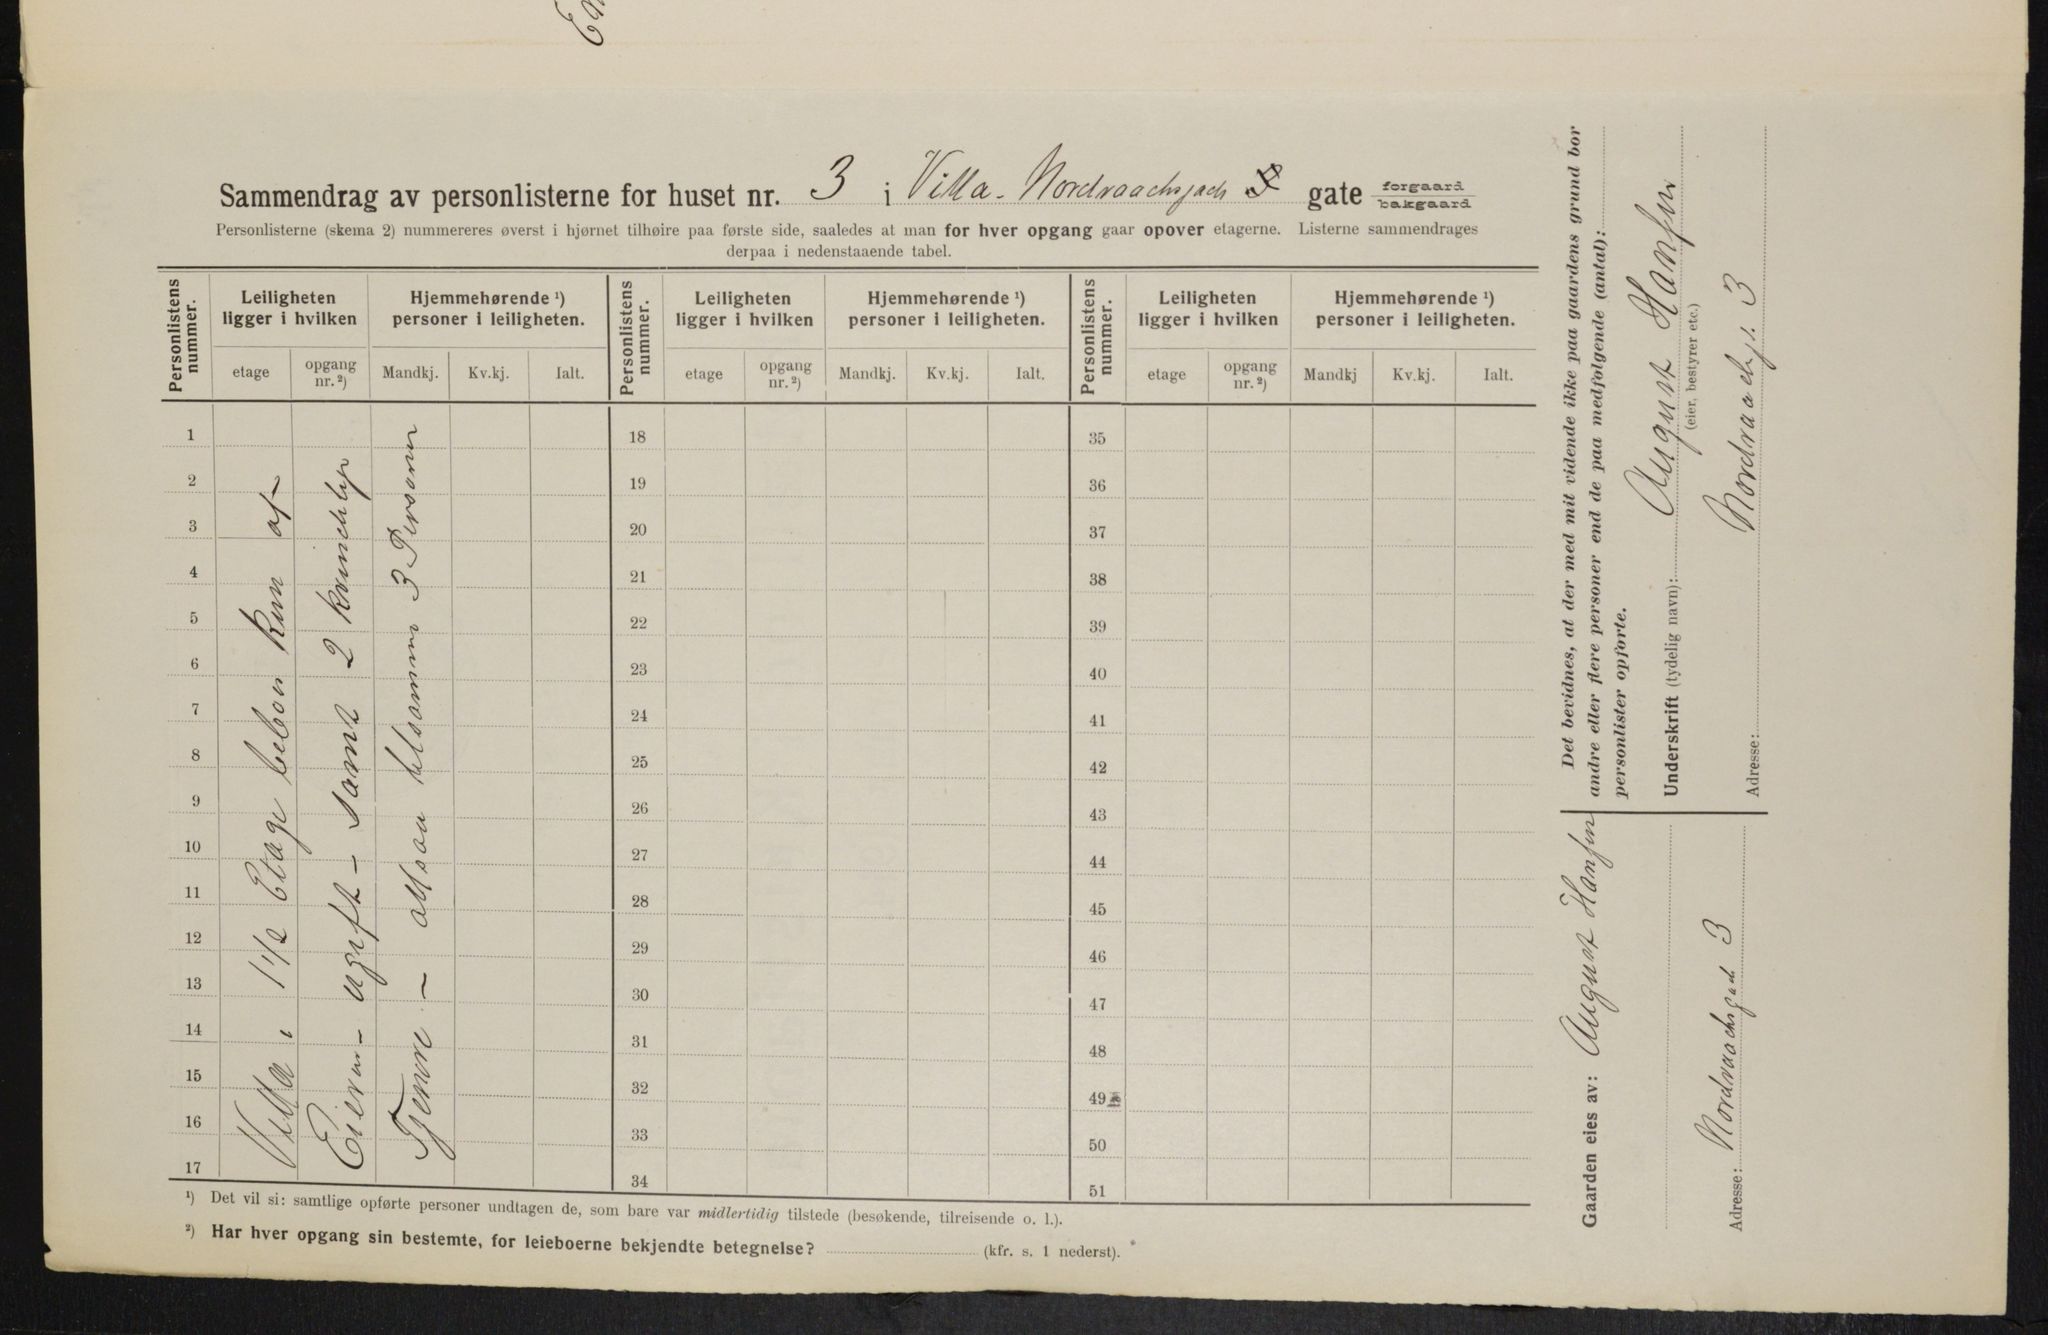 Sammendrag av personlisterne for huset nr. 3 i Villa - Nordraachsgade gate forgaard bakgaard
Personlisterne (skema 2) nummereres øverst i hjørnet tilhøire paa første side, saaledes at man for hver opgang gaar opover etagerne. Listerne sammendrages
derpaa i nedenstaaende tabel.
Personlistens nummer. Leiligheten ligger i hvilken Hjemmehørende ¹) personer i leiligheten. Personlistens nummer. Leiligheten ligger i hvilken Hjemmehørende ¹) personer i leiligheten. Personlistens nummer. Leiligheten ligger i hvilken Hjemmehørende ¹) personer i leiligheten.
etage opgang nr. ²) Mandkj. Kv.kj. Ialt. etage opgang nr. ²) Mandkj. Kv.kj. Ialt. etage opgang nr. ²) Mandkj Kv.kj. Ialt.
1 18 35
2 19 36
3 20 37
4 21 38
5 22 39
6 23 40
7 24 41
8 25 42
9 26 43
10 27 44
11 28 45
12 29 46
13 30 47
14 31 48
15 32 49
16 33 50
17 34 51
Villa i 1 1/2 Etage beboes kun af
Eieren - ugift - samt 2 kvindelige
Tjenere - altsaa tilsammen 3 Personer
¹) Det vil si: samtlige opførte personer undtagen de, som bare var midlertidig tilstede (besøkende, tilreisende o. l.).
²) Har hver opgang sin bestemte, for leieboerne bekjendte betegnelse? (kfr. s. 1 nederst).
Det bevidnes, at der med mit vidende ikke paa gaardens grund bor
andre eller flere personer end de paa medfølgende (antal):
personlister opførte.
Underskrift (tydelig navn): August Hansen
(eier, bestyrer etc.)
Adresse: Nordraachsg. 3
Gaarden eies av: August Hansen
Adresse: Nordraachsgade 3